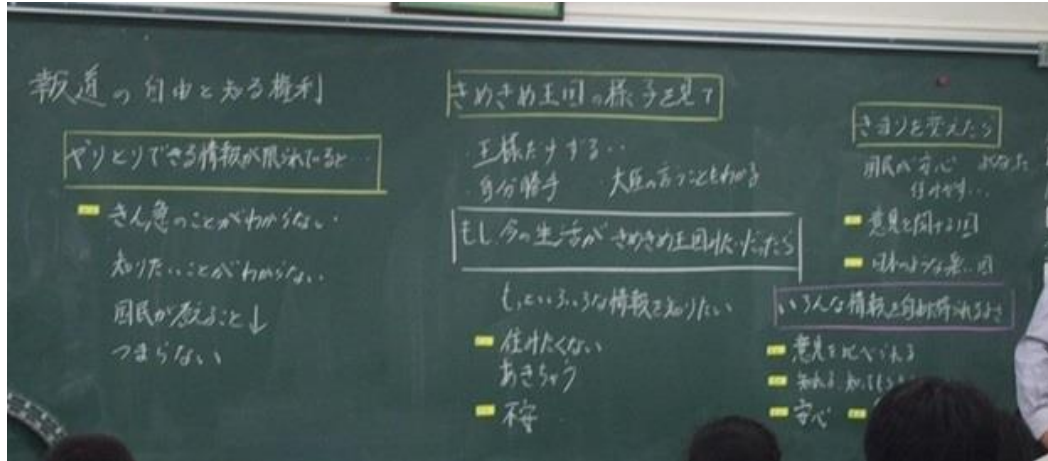 報道の自由と知る権利
やりとりできる情報が限られていると…
きん急のことがわからない
知りたいことがわからない
国民が考えること↓
つまらない
きめきめ王国の様子を見て
・王様だけずるい・・
・自分勝手 ・大臣の言うこともわかる
もし今の生活がきめきめ王国みたいだったら
もっといろいろな情報を知りたい
住みたくない
あきちゃう
不安
きまりを変えたら
国民が安心
住みやすい・・
意見を聞ける国
日本のような
いろんな情報を
意見を比べられる
知れる
安心